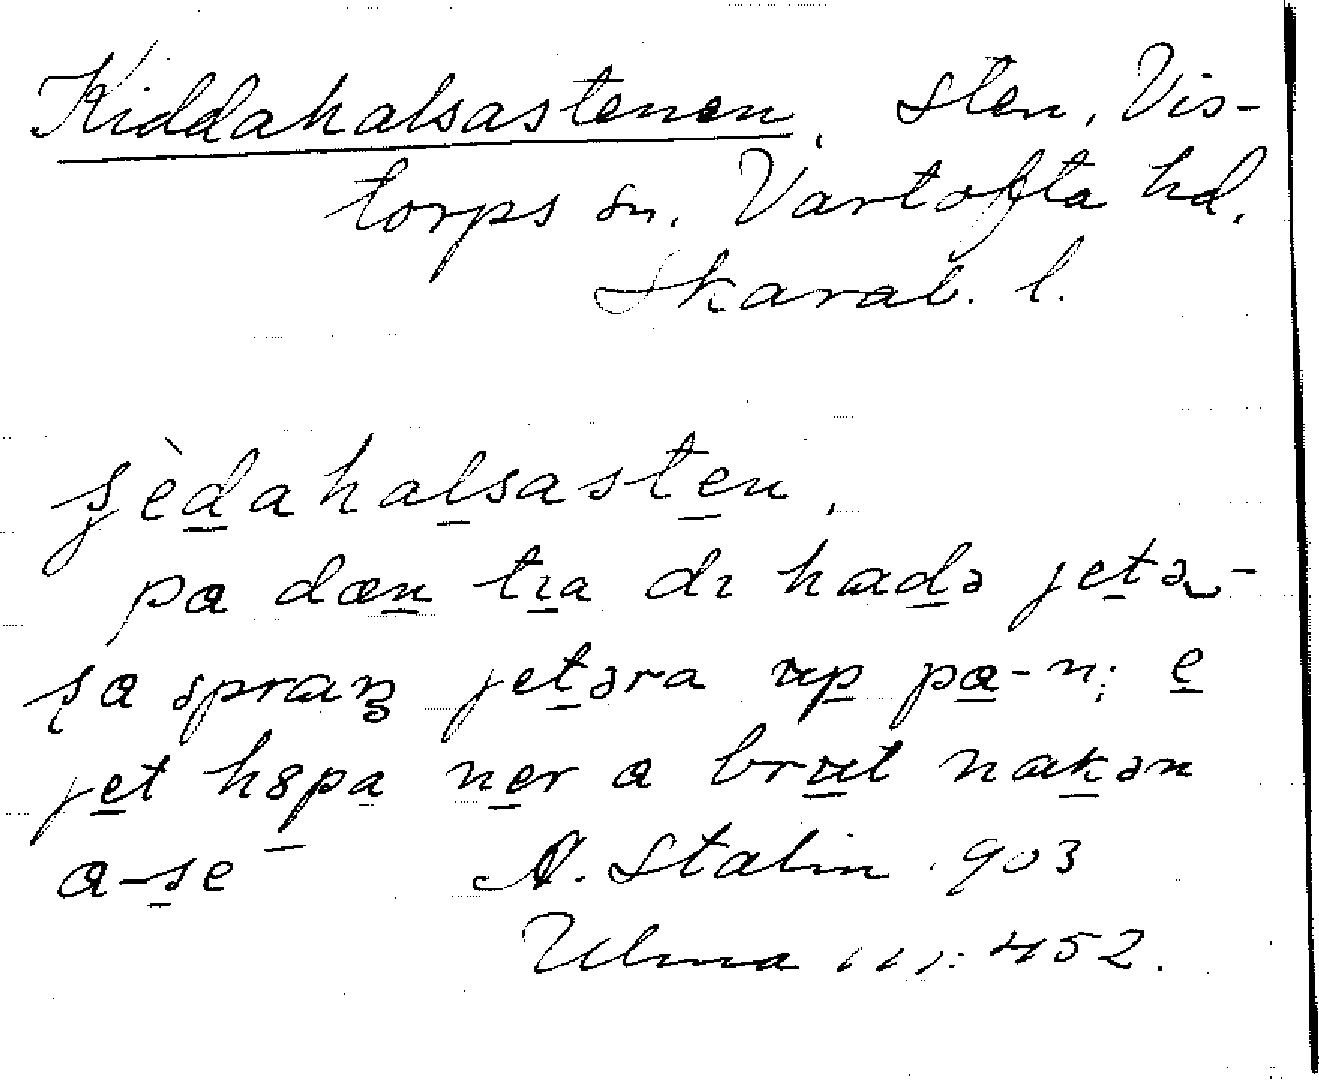 Kiddahalsastenen, sten, Vis-
torps sn. Vartofta hd.
Skarab. l.
ʂèdahalsasten,
pa dæn tıa dı hadə jetə-
ʂa spraŋ jetəra up pa-n; e
jet hɞpa ner a brut nakən
a-se A. Stalin 903
Ulma 111:452.